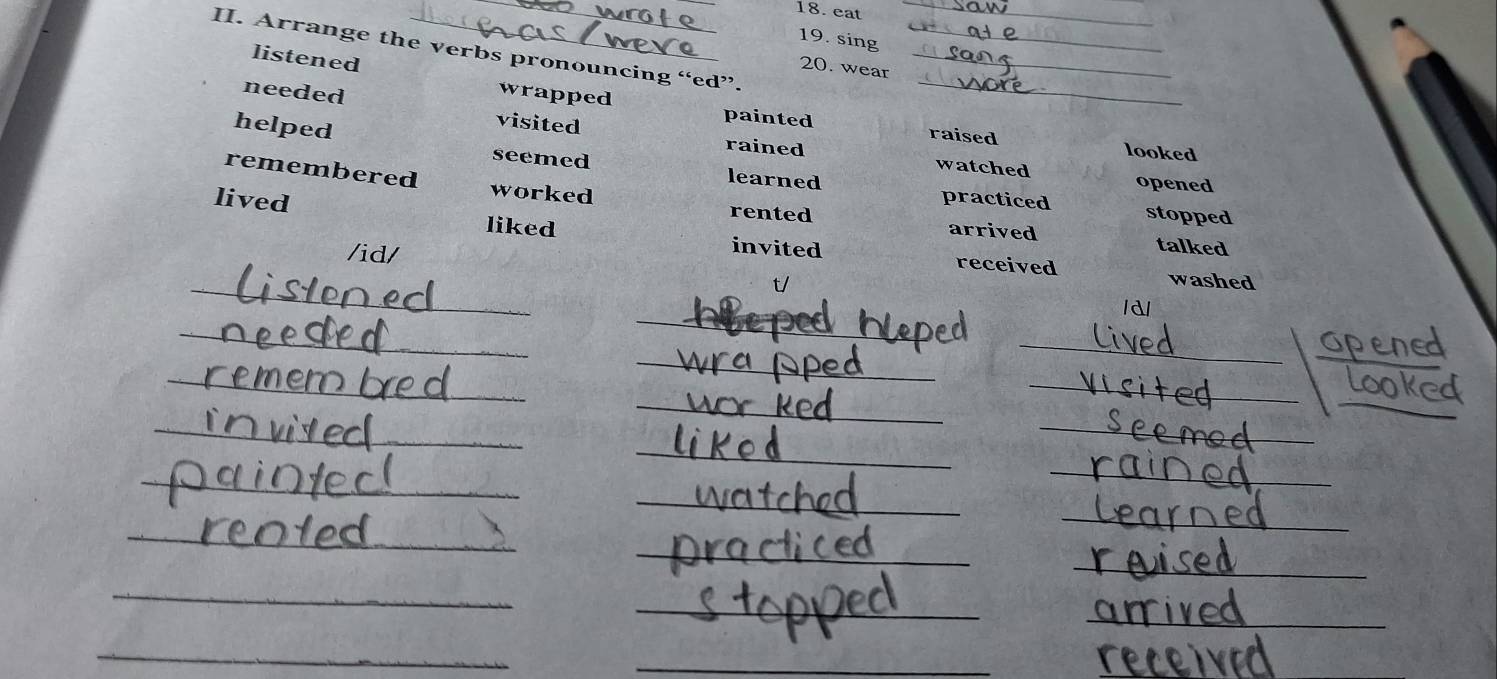 wrote
18. eat saw
was/were
19. sing ate
II. Arrange the verbs pronouncing “ed”.
20. wear sang
wore
listened wrapped painted raised looked
needed visited rained watched opened
helped seemed learned practiced stopped
remembered worked rented arrived talked
lived liked invited received washed
/id/ t/ /d/
listened hleped lived opened
needed wrapped visited looked
remembred worked seemed
invited liked rained
painted watched learned
rented practiced raised
stopped arrived
received